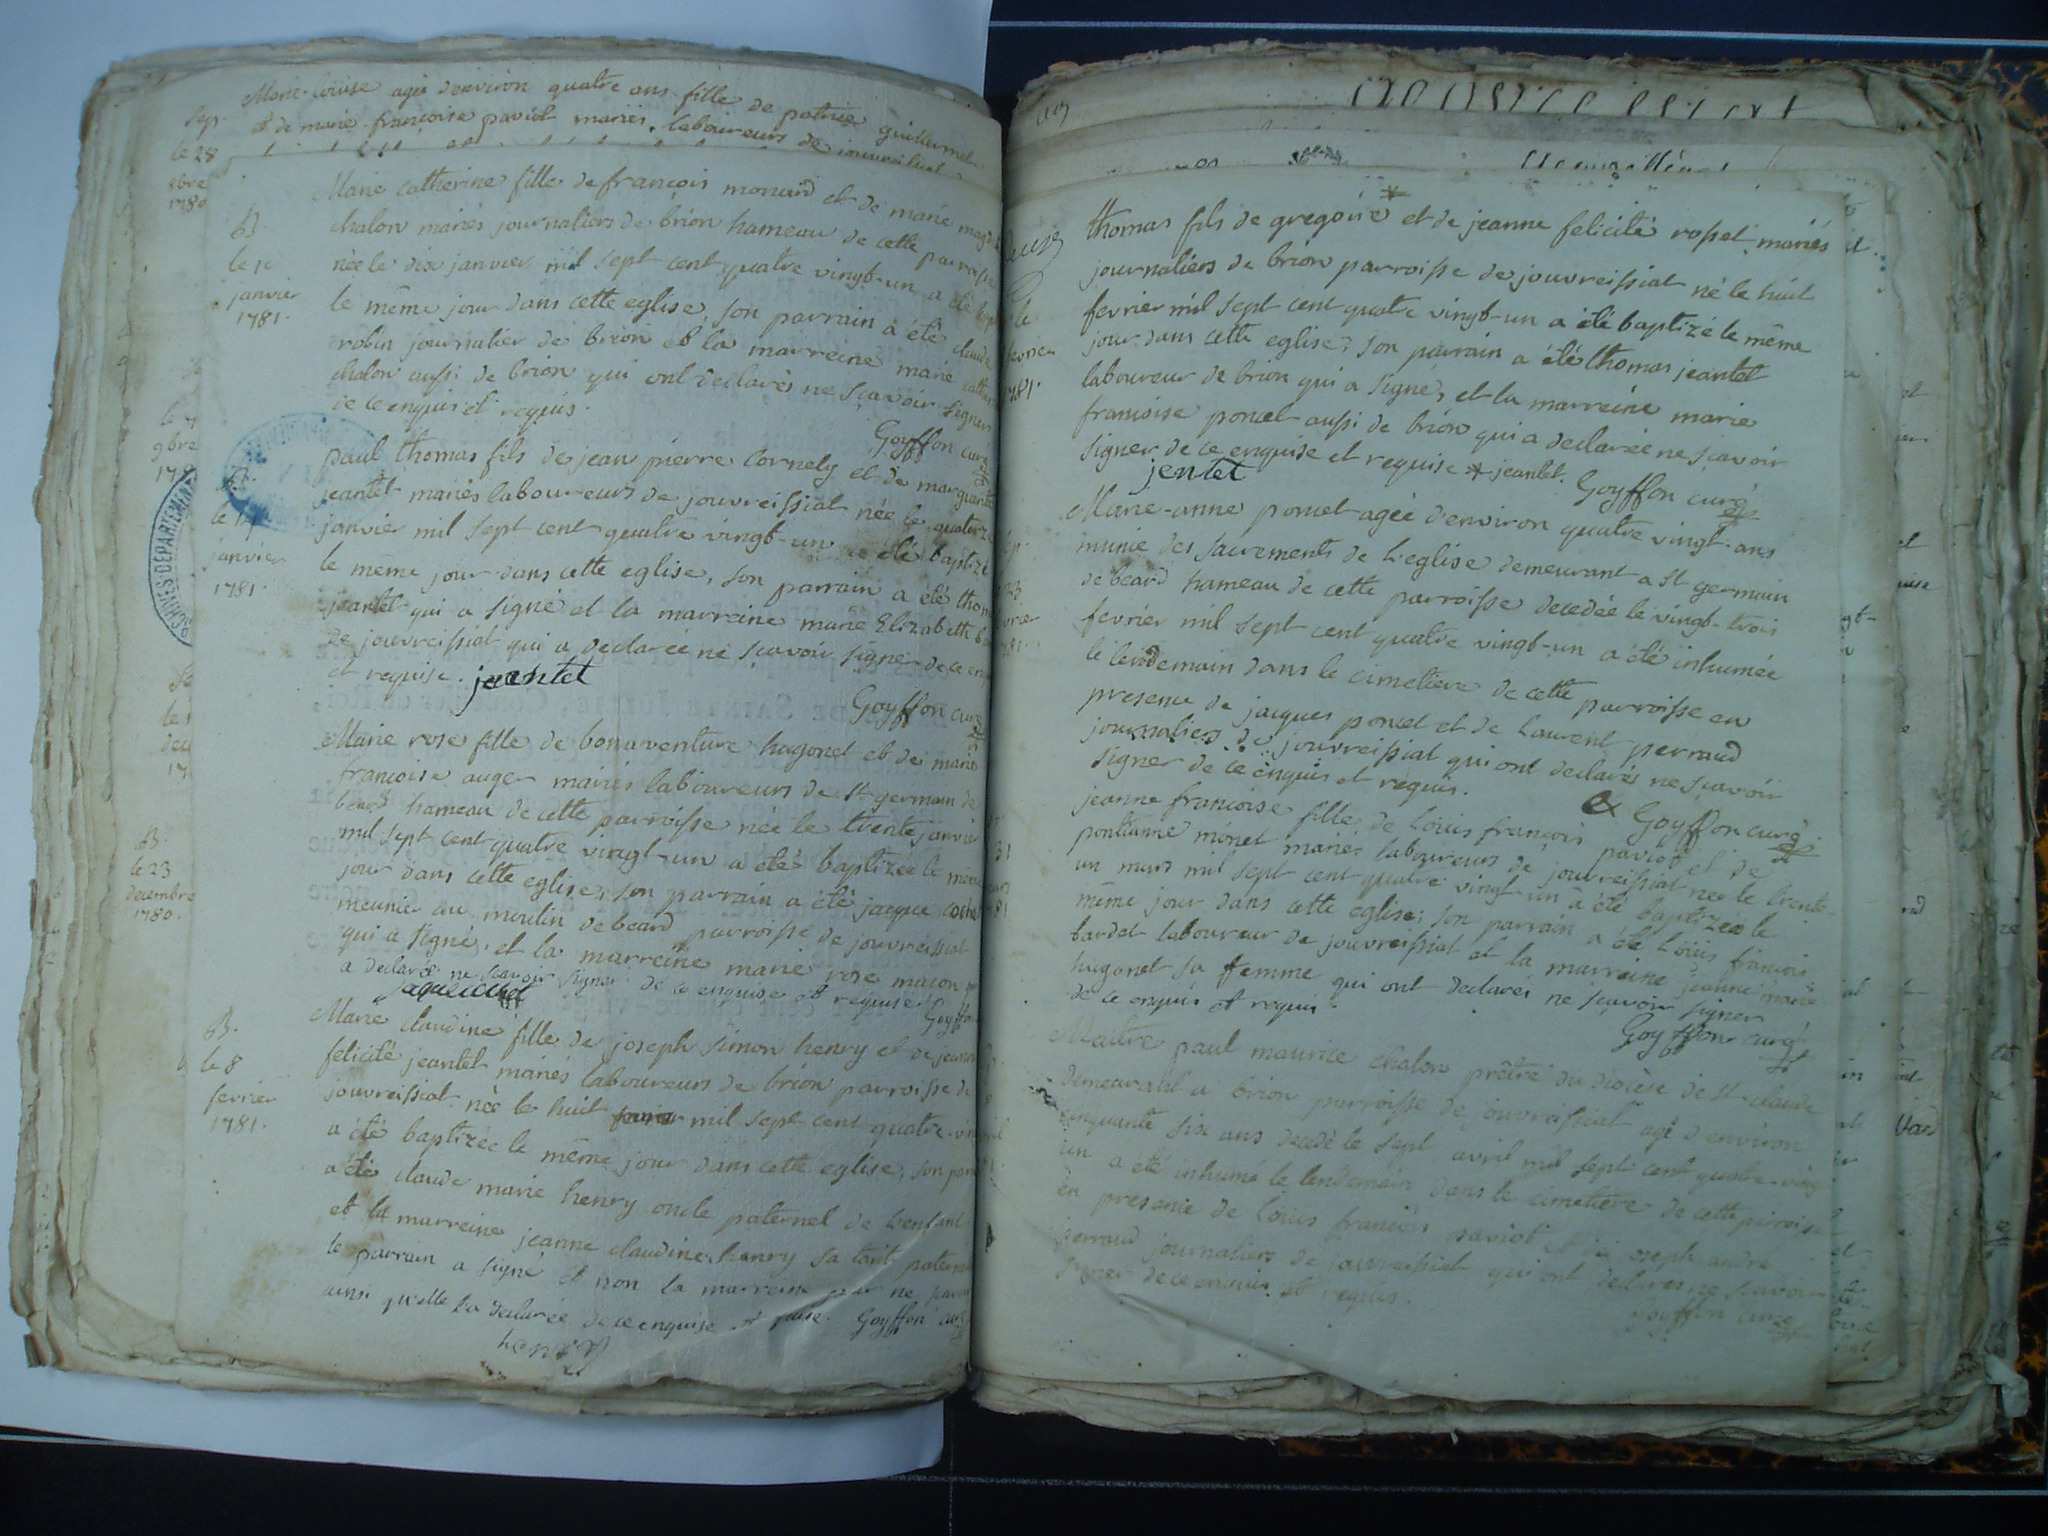 Marie Louise agée denviron quatre ans fille de patrice guillermet
et de marie françoise paviot mariés laboureurs de jouvreissiat
Sep.
le 28
1780
B.
le 10
janvier
1781.
Marie catherine fille de françois monard et de marie
chalon mariés journaliers de brion hameau de cette parroisse
née le dix janvier mil sept cent quatre vingt-un a été
le même jour dans cette eglise, son parrain a été claude
robin journalier de brion et la marreine marie
chalon aussi de brion qui ont declarés ne scavoir signer
de ce enquis et requis.
Goyffon curé
B.
le 14
janvier
1781.
paul thomas fils de jean pierre Cornely et de marguerite
jeantet mariés laboureurs de jouvreissiat née le quatorze
janvier mil sept cent quatre vingt-un a été baptizé
le même jour dans cette eglise, son parrain a été
jeantet qui a signé et la marreine marie Elizabeth
de jouvreissiat qui a declarée ne scavoir signer de ce
et requise. jeantet
Goyffon curé
Marie rose fille de bonaventure hugonet et de marie
françoise auger mariés laboureurs de St germain de
beard hameau de cette parroisse née le trente janvier
mil sept cent quatre vingt-un a été baptizée le meme
jour dans cette eglise, son parrain a été jacque
meunier au moulin de beard parroisse de jouvreissiat
qui a signé, et la marreine marie rose macon
a declarée ne scavoir signer de ce enquise et requise
B.
le 23
decembre
1780.
B.
le 8
fevrier
1781.
Marie claudine fille de joseph simon henry et de jeanne
felicité jeantet mariés laboureurs de brion parroisse de
jouvreissiat née le huit mil sept cent quatre
a été baptizée le même jour dans cette eglise, son
a été claude marie henry oncle paternel de l'enfant
et la marreine jeanne claudine henry sa tant
le parrain a signé et non la marreine pour ne
ainsi quelle la declarée de ce enquise et Goyffon curé
henry
thomas fils de gregoire * et de jeanne felicité rosset mariés
journaliers de brion parroisse de jouvreissiat né le huit
fevrier mil sept cent quatre vingt-un a été baptizé le même
jour dans cette eglise; son parrain a été thomas jeantet
laboureur de brion qui a signé, et la marreine marie
francoise poncet aussi de brion qui a declarée ne scavoir
signer de ce enquise et requise * jeantet.
jentet Goyffon curé
Marie-anne poncet agée d'environ quatre vingt ans
munie des sacrements de l'eglise demeurant a St germain
de beard hameau de cette parroisse decedée le vingt-trois
fevrier mil sept cent quatre vingt-un a été inhumée
le lendemain dans le cimetiere de cette parroisse en
presence de jacques poncet et de Laurent perraud
journaliers de jouvreissiat qui ont declarés ne scavoir
signer de ce enquis et requis.
Goyffon curé
jeanne francoise fille de Louis françois paviot et de
pontianne monet mariés laboureurs de jouvreissiat née le trente
un mars mil sept cent quatre vingt un a été baptizée le
même jour dans cette eglise; son parrain a été Louis francois
bardet laboureur de jouvreissiat et la marreine jeanne marie
hugonet sa femme qui ont declarés ne scavoir signer
de ce enquis et requis.
Goyffon curé
Maitre paul maurice chalon prêtre du diocèse de St claude
demeurant a brion parroisse de jouvreissiat agé d'environ
cinquante six ans decedé le sept avril mil sept cent quatre
un a été inhumé le lendemain dans le cimetiere de cette
en presence de Louis françois paviot et de joseph andré
perraud journaliers de jouvreissiat qui ont declarés ne scavoir
signer de ce enquis et requis.
Goyffon curé